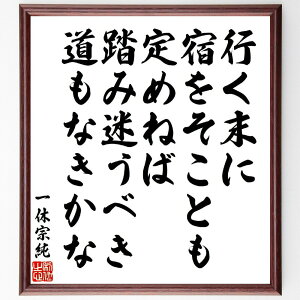 行く末に
宿をそことも
定めねば
踏み迷うべき
道もなきかな
一休宗純